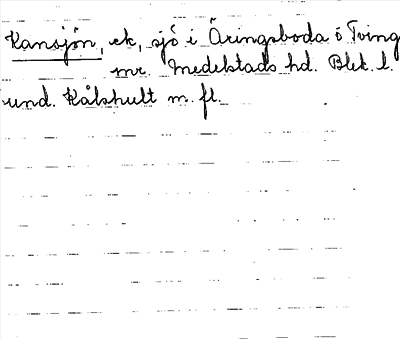 Kansjön, ek, sjö i Äringsboda i Tving
mr. Medelstads hd. Blek. l.
und. Kålshult m. fl.